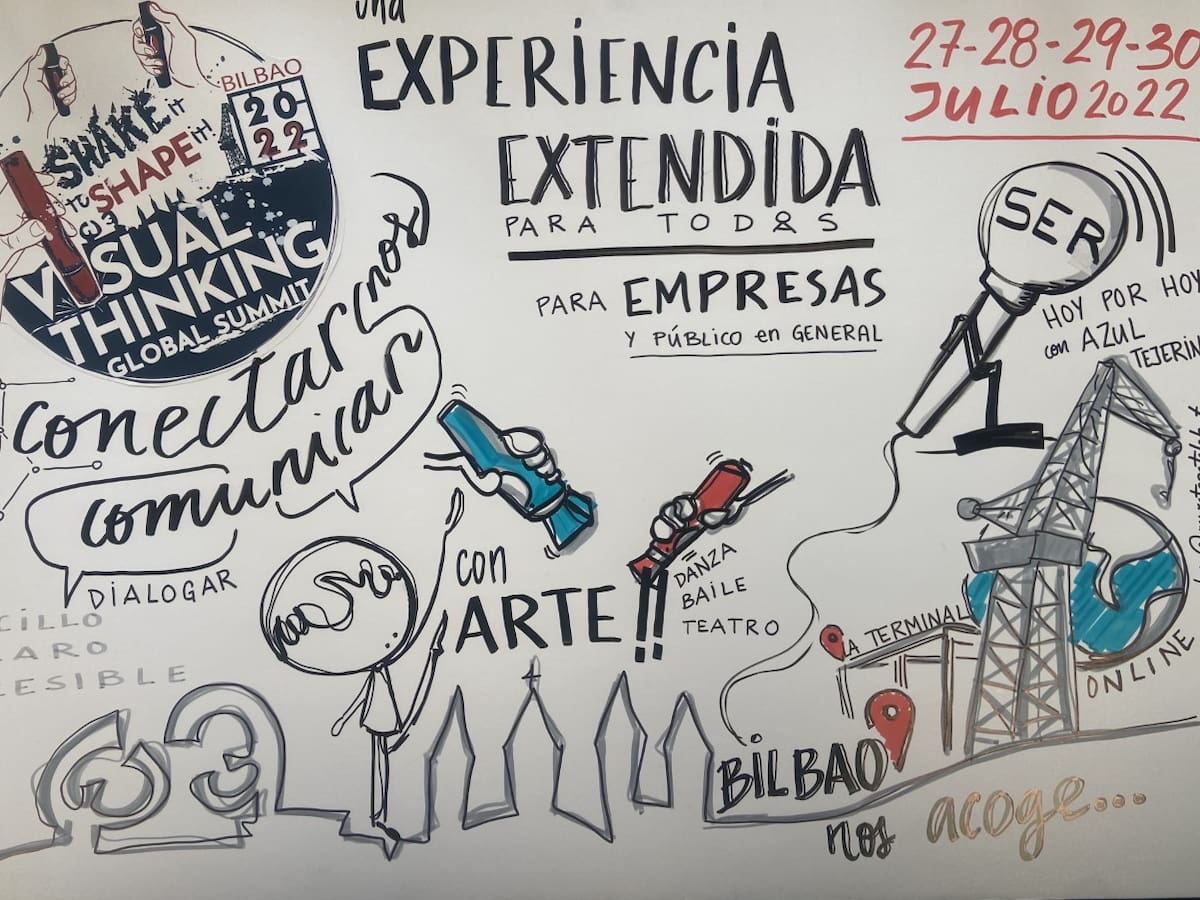 una
EXPERIENCIA
EXTENDIDA
PARA TOD&S
PARA EMPRESAS
Y PÚBLICO en GENERAL
27-28-29-30
JULIO 2022
BILBAO
20
22
SHAKE it
to SHAPE it!
VISUAL
THINKING
GLOBAL SUMMIT
conectar(nos)
comunicar
DIALOGAR
CILLO
ARO
CESIBLE
con
ARTE!!
DANZA
BAILE
TEATRO
SER
HOY POR HOY
con AZUL
TEJERIN
LA TERMINAL
ONLINE
BILBAO
nos acoge...